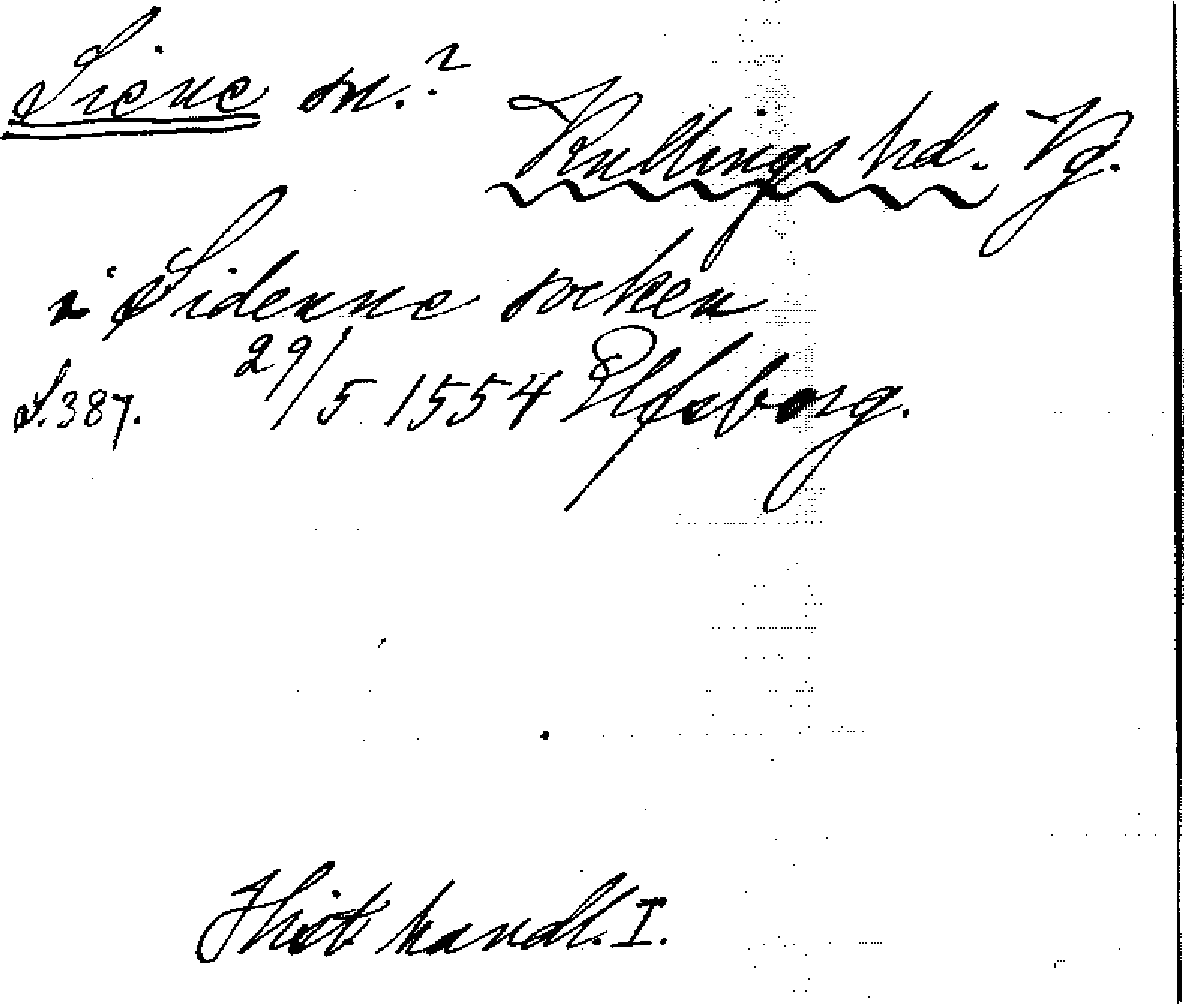 Siene sn.?
Kullings hd. Vg.
i Sidenne socken
S. 387. 29/5 1554 Elfsborg.
Hist. handl. I.